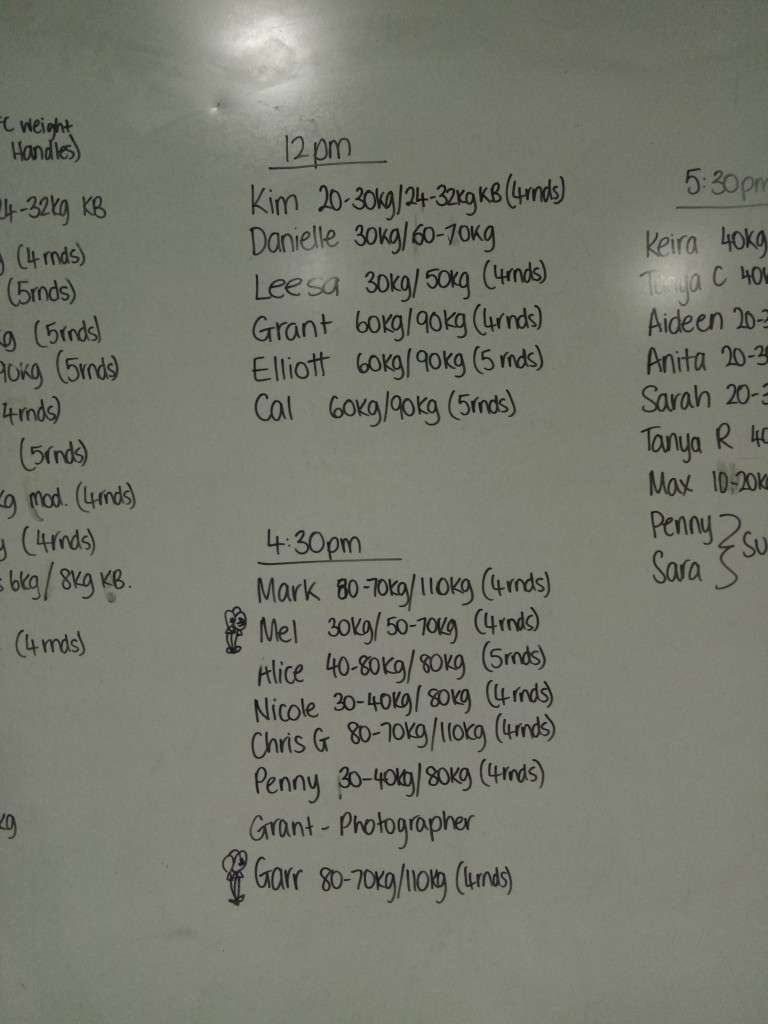 C weight
Handles)
24-32kg KB
(4rnds)
(5rnds)
kg (5rnds)
90kg (5rnds)
4rnds)
(5rnds)
kg mod. (4rnds)
(4rnds)
6kg/8kg KB.
(4rnds)
kg
12pm
Kim 20-30kg/24-32kgKB(4rnds)
Danielle 30kg/60-70kg
Leesa 30kg/50kg (4rnds)
Grant 60kg/90kg (4rnds)
Elliott 60kg/90kg (5rnds)
Cal 60kg/90kg (5rnds)
4:30pm
Mark 80-70kg/110kg (4rnds)
Mel 30kg/50-70kg (4rnds)
Alice 40-80kg/80kg (5rnds)
Nicole 30-40kg/80kg (4rnds)
Chris G 80-70kg/110kg (4rnds)
Penny 30-40kg/80kg (4rnds)
Grant - Photographer
Garr 80-70kg/110kg (4rnds)
5:30pm
Keira 40kg
Tanya C 40k
Aideen 20-3
Anita 20-30
Sarah 20-3
Tanya R 40
Max 10-20kg
Penny
Su
Sara